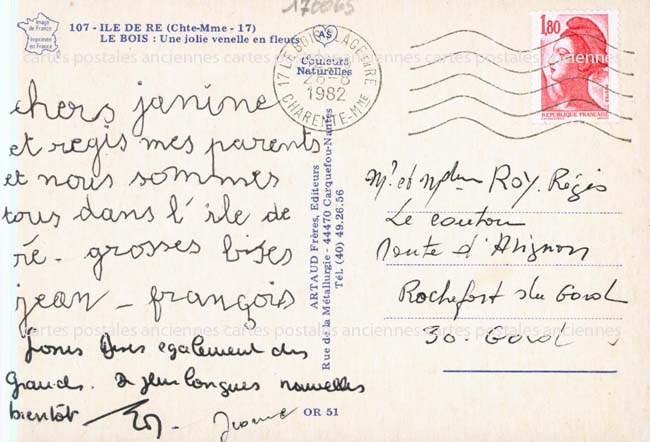 170065
Image de France
Imprimée en France
107 - ILE DE RE (Chte-Mme - 17)
LE BOIS : Une jolie venelle en fleurs
AS
Couleurs
Naturelles
17 LE BOIS PLAGE EN RE
28-8
1982
CHARENTE-MME
1,80
REPUBLIQUE FRANÇAISE
chers janine
et regis mes parents
et nous sommes
tous dans l'ile de
ré - grosses bises
jean - françois
bises egalement des
grands. De plus longues nouvelles
bientôt
ARTAUD Frères, Editeurs
Rue de la Métallurgie - 44470 Carquefou-Nantes
Tél. (40) 49.26.56
OR 51
Mr et Mme ROY Régis
Le
route d'Avignon
Rochefort du Gard
30 - Gard
cartes postales anciennes cartes postales anciennes cartes postales anciennes
cartes postales anciennes cartes postales anciennes cartes postales anciennes